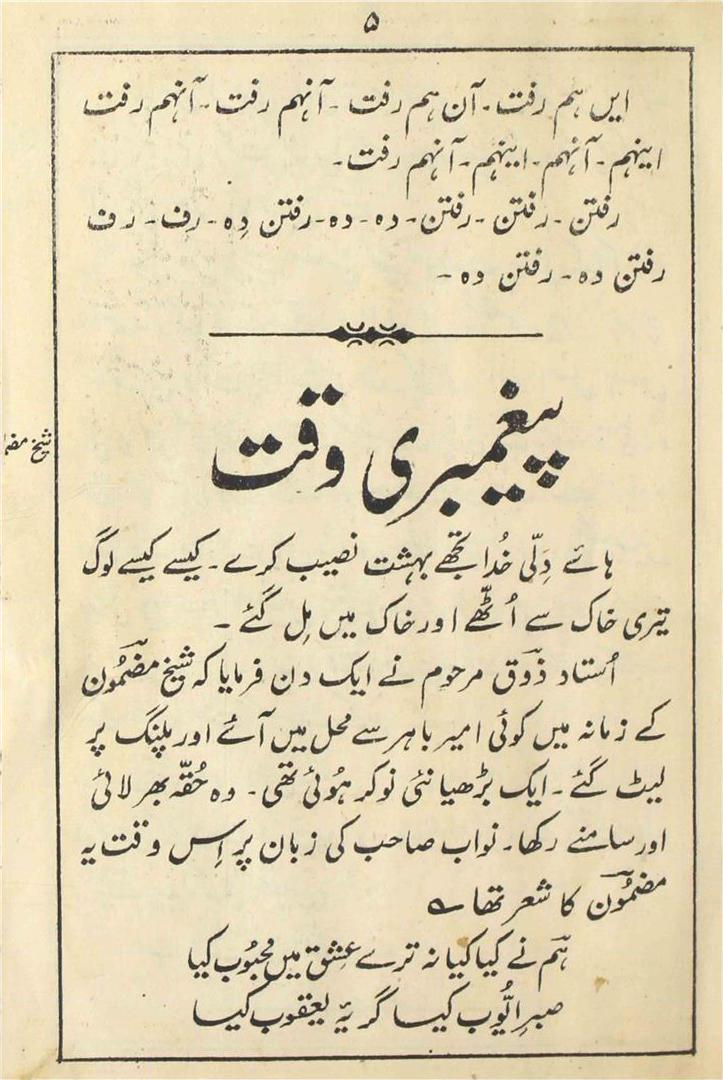 ۵
ایں ہم رفت۔ آن ہم رفت۔ آنہم رفت۔ آنہم رفت
اینہم۔ آنہم۔ اینہم۔ آنہم رفت۔
رفتن۔ رفتن۔ رفتن۔ دہ۔ دہ۔ رفتن دِہ۔ رف۔ رف
رفتن دہ۔ رفتن دہ۔
پیغمبری وقت
ہائے دِلّی خُدا تجھے بہشت نصیب کرے۔ کیسے کیسے لوگ
تیری خاک سے اُٹھّے اور خاک میں مِل گئے۔
اُستاد ذوقؔ مرحوم نے ایک دن فرمایا کہ شیخ مضمُونؔ
شیخ
کے زمانہ میں کوئی امیر باہر سے محل میں آئے اور پلنگ پر
لیٹ گئے۔ ایک بڑھیا نئی نوکر ہُوئی تھی۔ وہ حُقّہ بھر لائی
اور سامنے رکھا۔ نواب صاحب کی زبان پر اِس وقت یہ
مضمُونؔ کا شعر تھا ؎
ہم نے کیا کیا نہ ترے عِشق میں محبُوب کیا
صبرِ ایُّوب کیا گریۂ یعقوب کیا